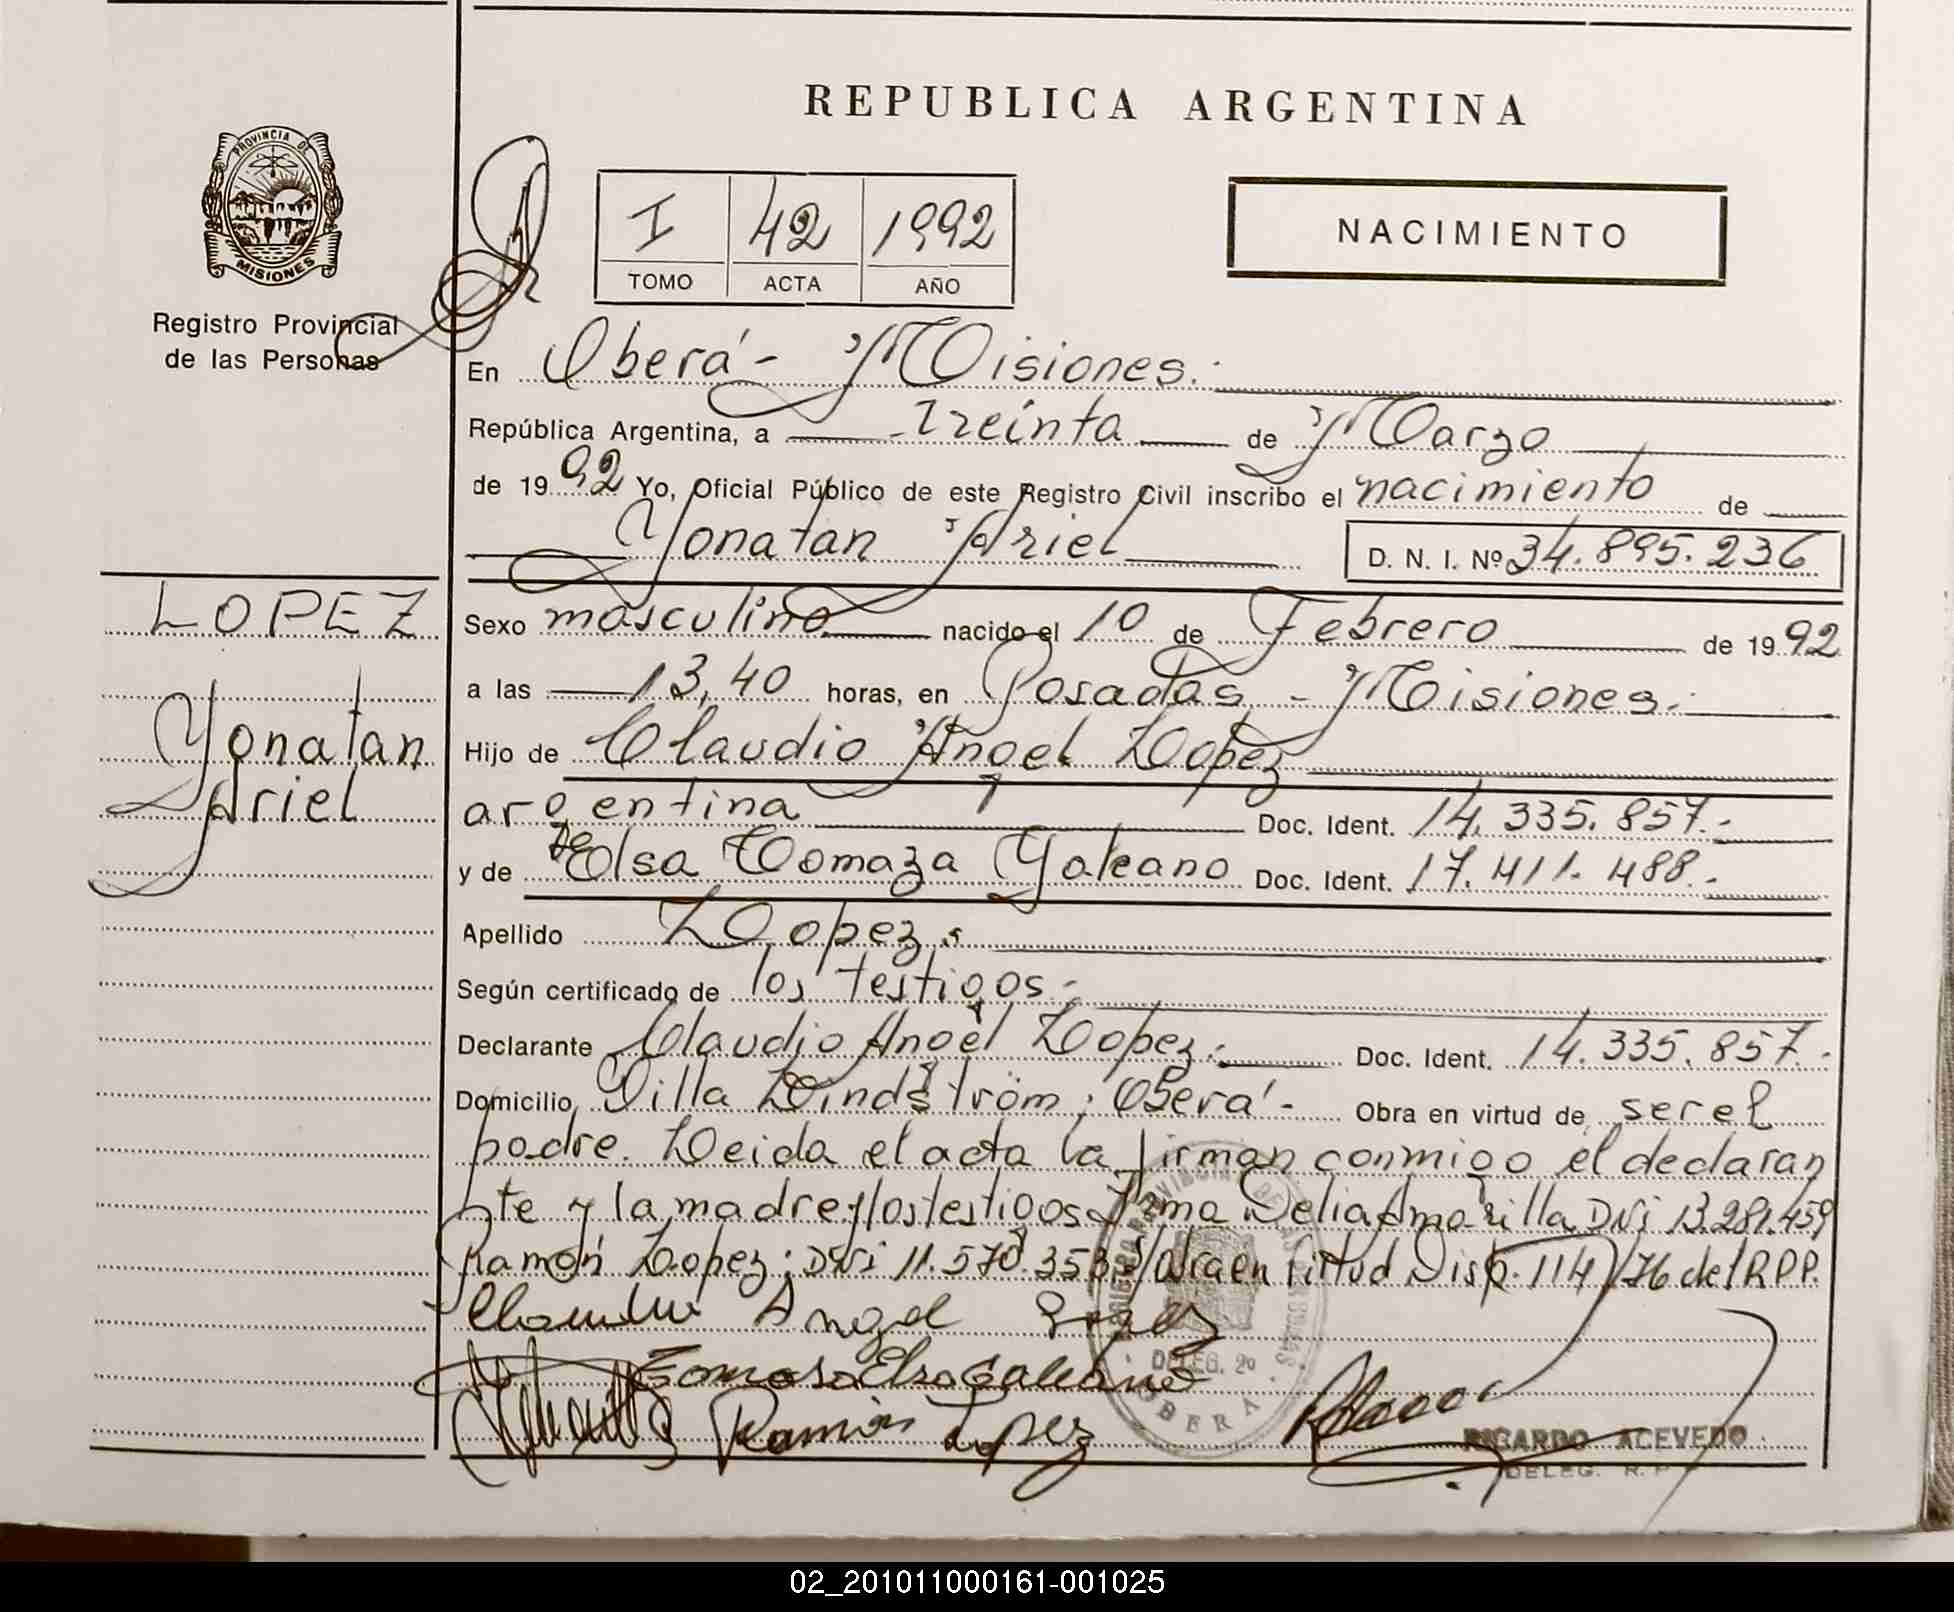 REPUBLICA ARGENTINA
PROVINCIA DE
MISIONES
Registro Provincial
de las Personas
I 42 1992
TOMO ACTA AÑO
NACIMIENTO
En Oberá - Misiones.
República Argentina, a treinta de Marzo
de 1992 Yo, Oficial Público de este Registro Civil inscribo el nacimiento de
Yonatan Ariel D. N. I. Nº 34.895.236
LOPEZ
Yonatan
Ariel
Sexo masculino nacido el 10 de Febrero de 1992
a las 13,40 horas, en Posadas - Misiones.
Hijo de Claudio Angel Lopez
argentina Doc. Ident. 14.335.857.-
y de Elsa Tomaza Galeano Doc. Ident. 17.411.488.-
Apellido Lopez.
Según certificado de los testigos.-
Declarante Claudio Angel Lopez. Doc. Ident. 14.335.857.-
Domicilio Villa Lindström; Oberá.- Obra en virtud de ser el
padre. Leida el acta la firman conmigo el declaran
te y la madre y los testigos Irma Delia Amarilla DNi 13.281.459
Ramón Lopez; DNi 11.570.353 Obra en Virtud Disp. 114/76 del R.P.P.
Angel
Tomasa Elsa Galeano
Ramón Lopez
DELEG. 2º
OBERA
RICARDO ACEVEDO
DELEG. R. P.
02_201011000161-001025